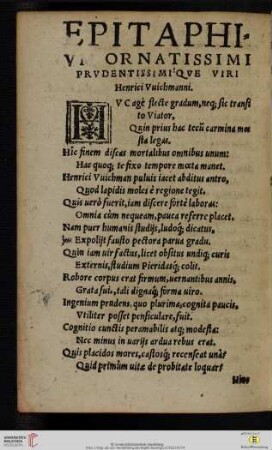 EPITAPHI-
VM ORNATISSIMI
PRVDENTISSIMIQVE VIRI
Henrici Vuichmanni.
HVC age flecte gradum, neq; sic transito
to Viator,
Quin prius hac tecũ carmina mœ
sta legas.
Hîc finem discas mortalibus omnibus unum:
Hac quoq; te fixo tempore meta manet.
Henrici Vuichman puluis iacet abditus antro,
Quod lapidis moles è regione tegit.
Quis uerò fuerit, iam discere fortè laboras:
Omnia cùm nequeam, pauca referre placet.
Nam puer humanis studijs, ludoq; dicatus,
Expolijt fausto pectora parua gradu.
Quin iam uir factus, licet obsitus undiq; curis
Externis, studium Pieridesq; colit.
Robore corpus erat firmum, uernantibus annis,
Grata fuit, tali dignaq; forma uiro.
Ingenium prudens, quo plurima, cognita paucis,
Vtiliter posset pensiculare, fuit.
Cognitio cunctis peramabilis atq; modesta:
Nec minus in uarijs ardua rebus erat.
Quis placidos mores, castosq; recenseat unus?
Quid primùm uitæ de probitate loquar?